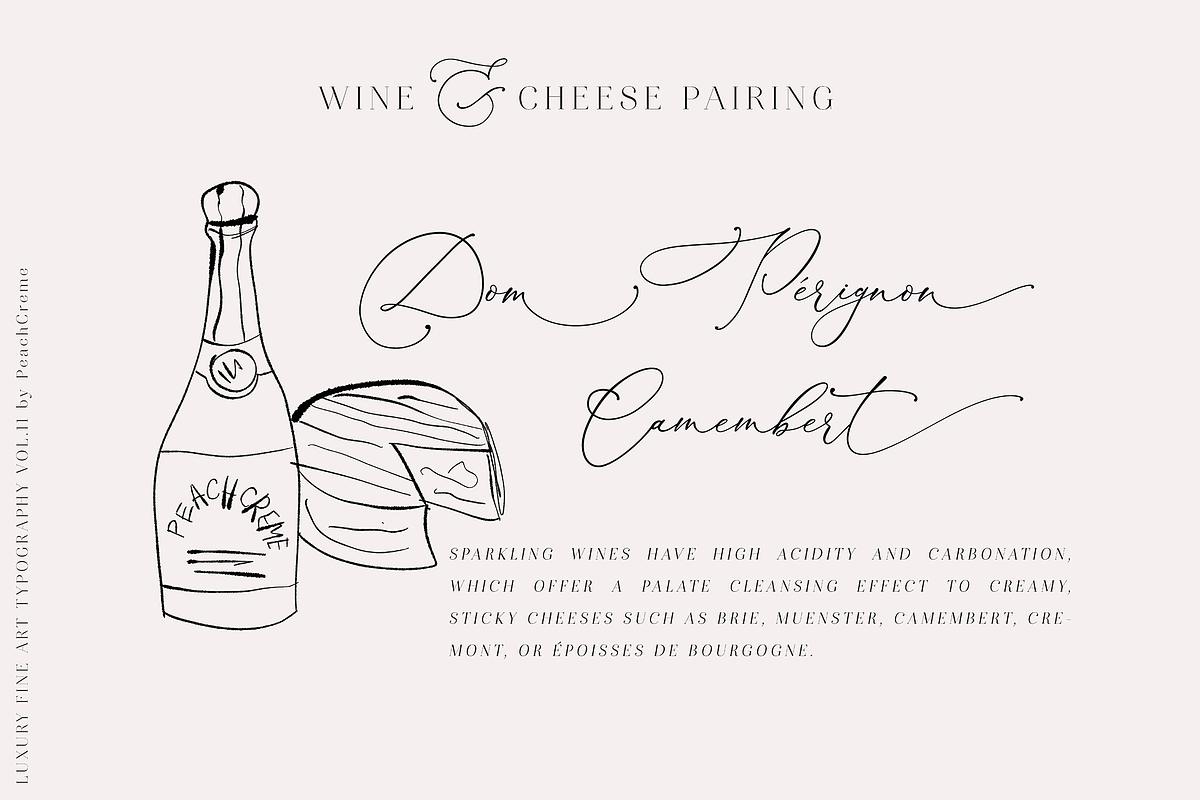 WINE & CHEESE PAIRING
Dom Pérignon
Camembert
PEACH CREME
SPARKLING WINES HAVE HIGH ACIDITY AND CARBONATION,
WHICH OFFER A PALATE CLEANSING EFFECT TO CREAMY,
STICKY CHEESES SUCH AS BRIE, MUENSTER, CAMEMBERT, CRE-
MONT, OR ÉPOISSES DE BOURGOGNE.
LUXURY FINE ART TYPOGRAPHY VOL.11 by PeachCreme